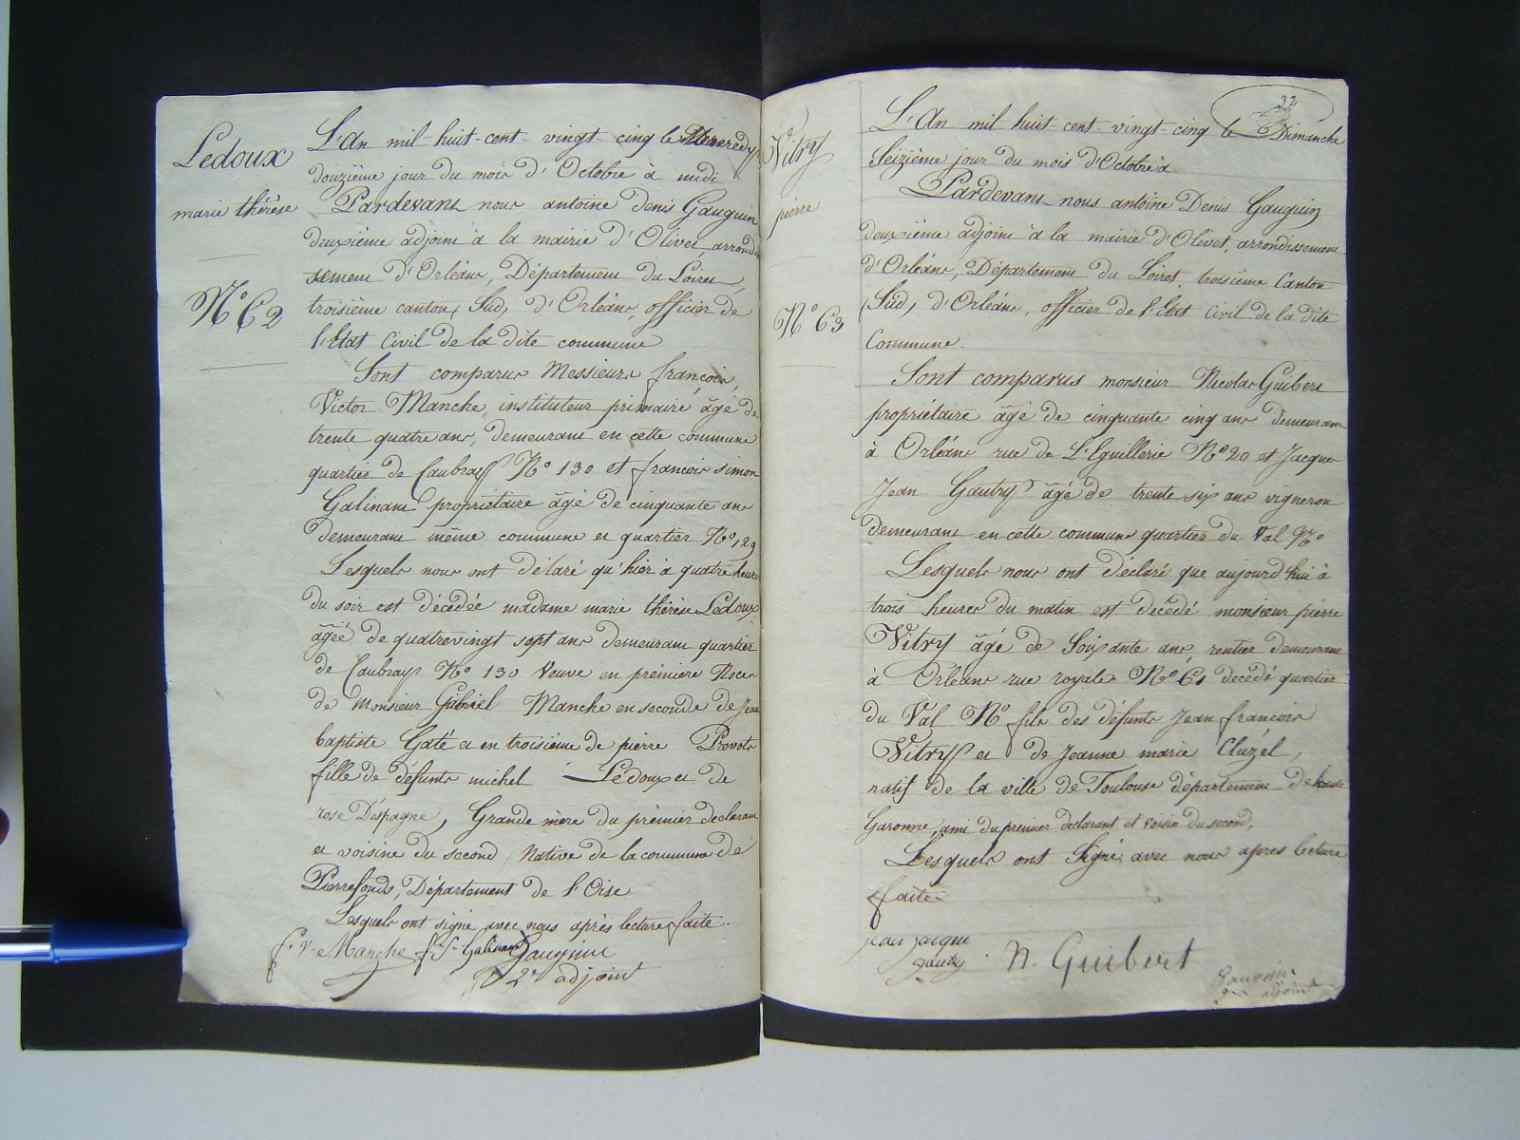 Ledoux
marie thérèse
N° 62
L'An mil-huit-cent-vingt-cinq le Mercredy
douzième jour du mois d'Octobre à midi
Pardevant nous antoine denis Gauguin
deuxième adjoint à la mairie d'Olivet, arrondis
sement d'Orléans, Département du Loiret,
troisième canton, Sud, d'Orléans, officier de
l'Etat Civil de la dite commune
Sont comparus Messieurs françois,
Victor Manche, instituteur primaire âgé de
trente quatre ans, demeurant en cette commune
quartier de Caubray N° 130 et francois simon
Galinand propriétaire âgé de cinquante ans
demeurant même commune et quartier N° 129
Lesquels nous ont délaré qu'hier à quatre heures
du soir est décédée madame marie thérèse Ledoux
âgée de quatrevingt sept ans demeurant quartier
de Caubray N° 130 veuve en première Noce
de Monsieur Gabriel Manche en seconde de Jean
baptiste Gaté et en troisième de pierre Provots
fille de défunts michel Ledoux et de
rose Despagne, Grande mère du prémier declarant
et voisine du second, Native de la commune de
Pierrefonds, Département de l'Oise
Lesquels ont signé avec nous après lecture faite.
f. V. Manche f. S. Galinand Gauguin
2e adjoint
Vitry
pierre
N° 63
L'An mil huit-cent-vingt-cinq le Dimanche
Seizième jour du mois d'Octobre à
Pardevant nous antoine Denis Gauguin
deuxième adjoint à la mairie d'Olivet, arrondissement
d'Orléans, Département du Loiret, troisième Canton
(Sud) d'Orléans, officier de l'Etat Civil de la dite
Commune.
Sont comparus monsieur Nicolas Guibert
propriétaire âgé de cinquante cinq ans demeurant
à Orléans rue de L'Eguillerie N° 20 et Jacques
Jean Gautry âgé de trente six ans vigneron
demeurant en cette commune quartier du Val N°
Lesquels nous ont déclaré que aujourd'hui à
trois heures du matin est décédé monsieur pierre
Vitry âgé de Soixante ans, rentier demeurant
à Orléans rue royale N° 61 décédé quartier
du Val N° fils des défunts Jean francois
Vitry et de Jeanne marie Cluzel,
natif de la ville de Toulouse département de haute
Garonne, ami du premier declarant et voisin du second,
Lesquels ont Signé avec nous apres lecture
faite
jean jacque
gautry
N. Guibert
Gauguin
2e adjoint